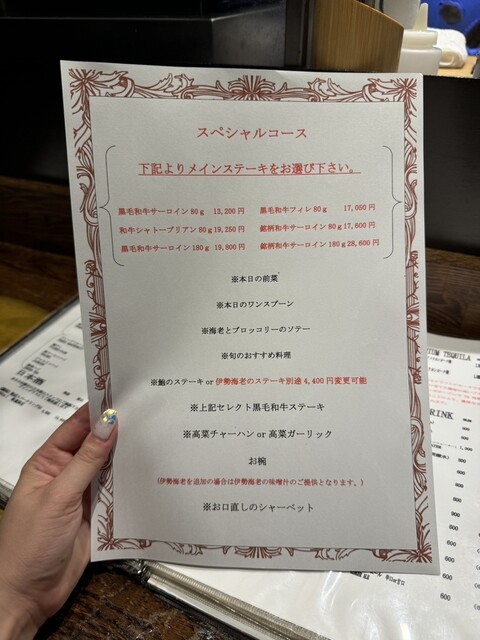 スペシャルコース
下記よりメインステーキをお選び下さい。
黒毛和牛サーロイン80g 13,200円 黒毛和牛フィレ80g 17,050円
和牛シャトーブリアン80g19,250円 銘柄和牛サーロイン80g17,600円
黒毛和牛サーロイン180g 19,800円 銘柄和牛サーロイン180g28,600円
※本日の前菜
※本日のワンスプーン
※海老とブロッコリーのソテー
※旬のおすすめ料理
※鮑のステーキor伊勢海老のステーキ別途4,400円変更可能
※上記セレクト黒毛和牛ステーキ
※高菜チャーハン or 高菜ガーリック
お椀
(伊勢海老を追加の場合は伊勢海老の味噌汁のご提供となります。)
※お口直しのシャーベット
TEQUILA
DRINK
600
800
900
900
600
600
600
600